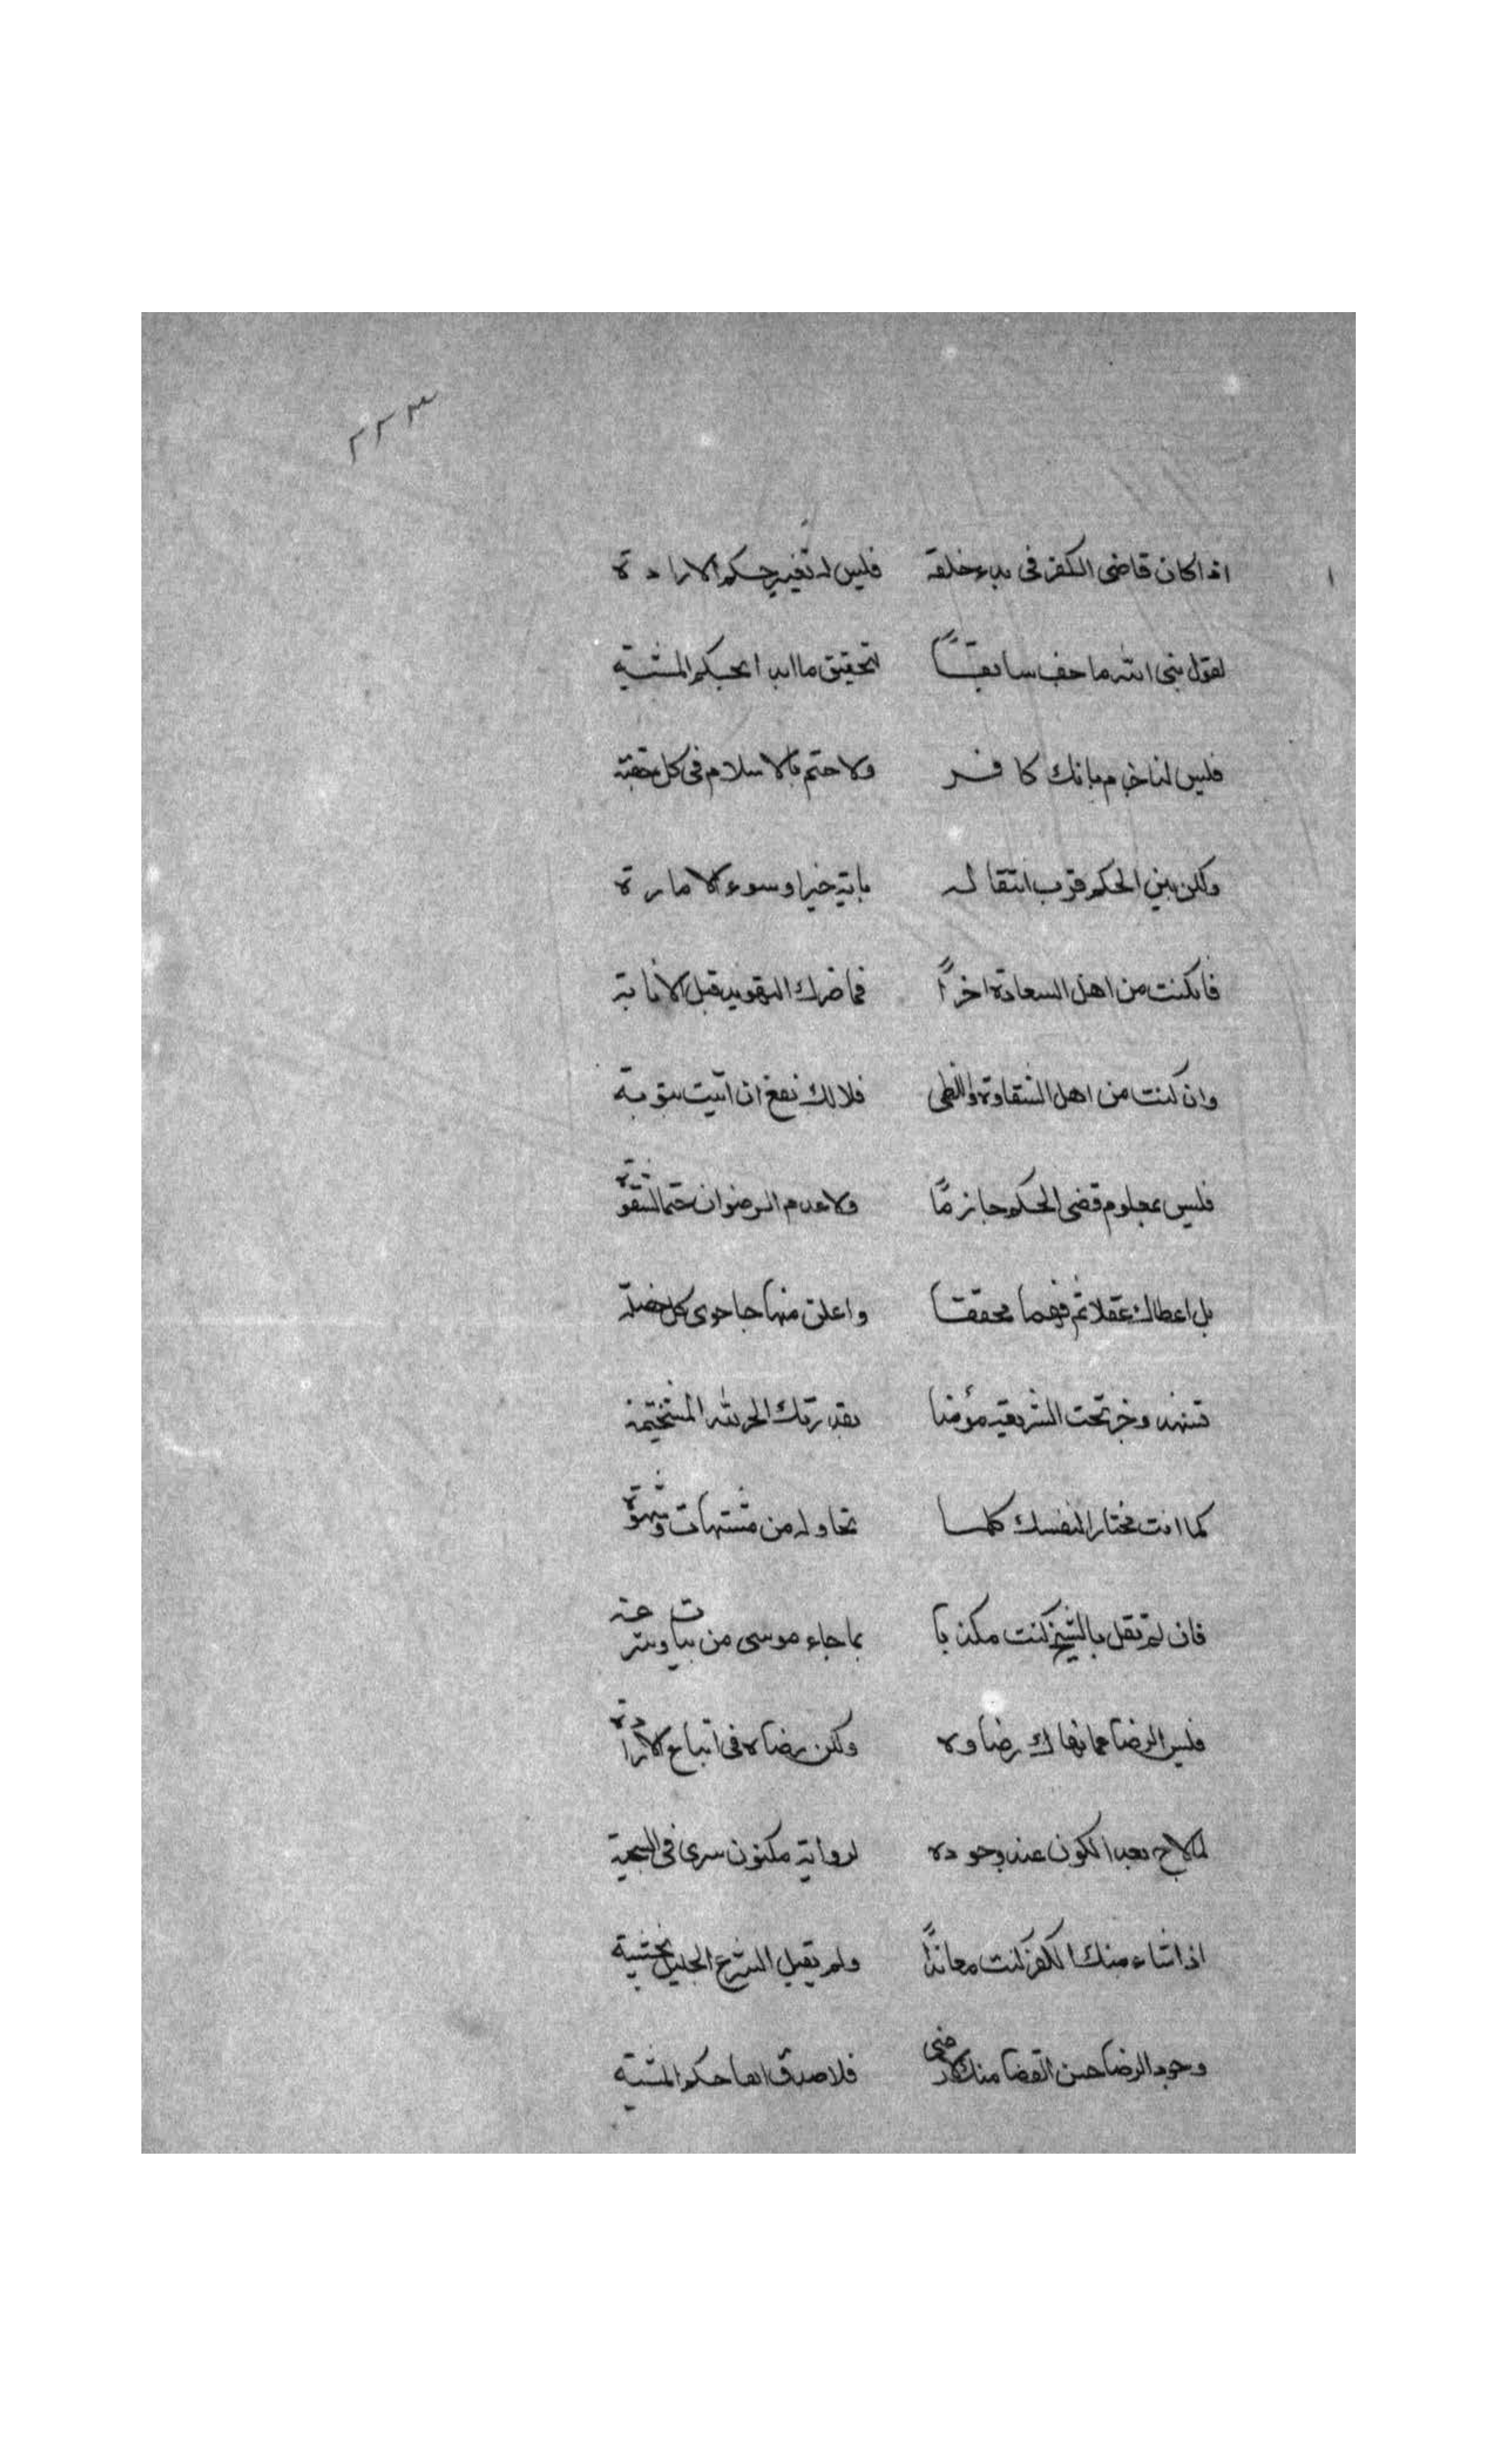 ٢٢٣
اذا كان قاضى الكفر فى بدء خلقه فليس له تغيير حكم الارادة
لقول نبى الله ما حف سابقـــاً لتحقيق ما ابدا بحكم المشية
فليس لنا جزم بانك كافـــر ولا حتم بالاسلام فى كل
ولكن بين الحكم قرب انتقالـه باتيه خيرا وسوء الامارة
فان كنت من اهل السعادة اخراً فما ضرك التهويد قبل الانابة
وان كنت من اهل الشقاوة واللظى فلا لك نفع ان اتيت بتوبة
فليس بمعلوم قضى الحكم جازمًا ولا عدم الرضوان حتما لشقوة
بل اعطاك عقلا ثم فهما محققـا واعلن منهاجا حوى كل
وخر تحت الشريعة مؤمنا ربك الحمد لله
كما انت مختارا لنفسك كلمـا تحاوله من مشتهات وشهوة
فان لم تقل بالشيخ كنت مكذبا بما جاء موسى من بيات وشرحة
فليس الرضا عما نهاك رضاوه ولكن رضاه فى اتباع الارادة
لما لاح بعد الكون عند وجوده لرواية مكنون سرى فى
اذا شاء منك الكفر كنت معانداً ولم تقبل الشرع الجليل بخشية
وجود الرضا حسن القضا منك لا رضى فلا صدق انها حكم المشية